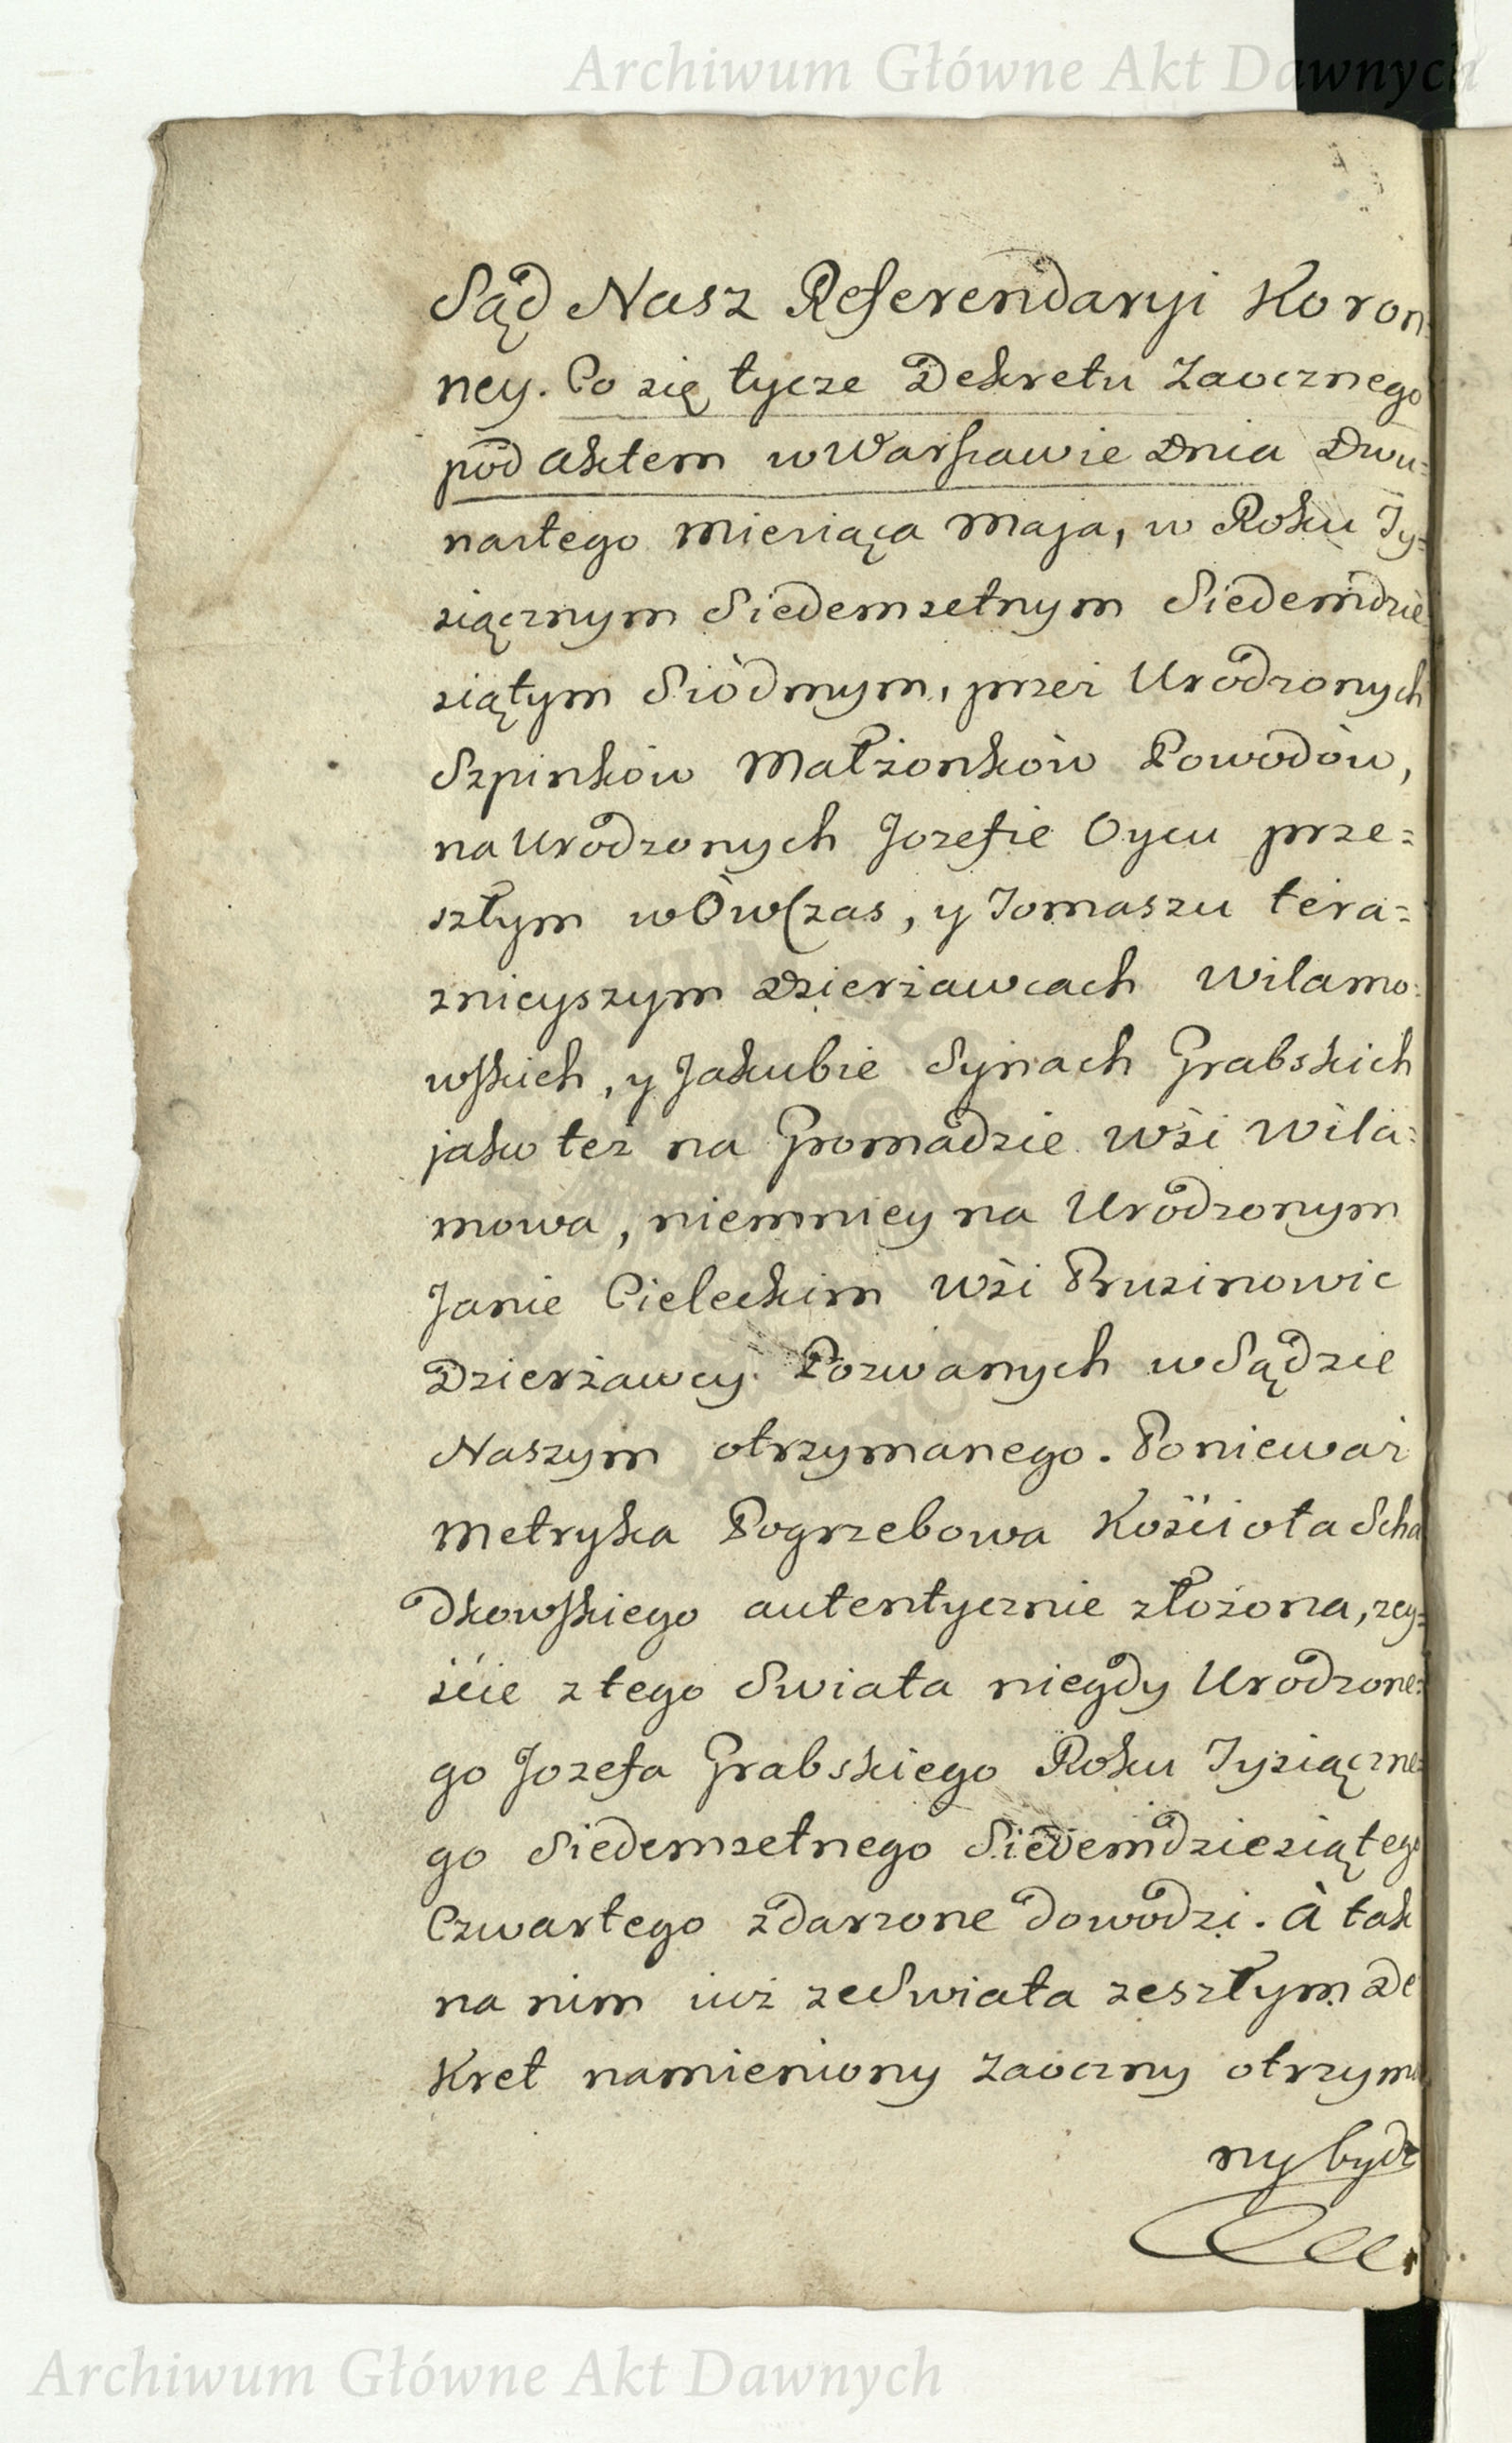 Archiwum Główne Akt Dawnych
Sąd Nasz Referendaryi Koron=
ney. Co się tycze Dekretu Zaocznego
pod Aktem w Warszawie Dnia Dwu=
nastego Miesiąca Maja, w Roku Ty=
siącznym Siedemsetnym Siedemdzie
siątym Siódmym, przez Urodzonych
Szpinków Małżonków Powodów,
na Urodzonych Jozefie Oycu prze=
szłym wÓwczas, y Tomaszu tera=
znieyszym Dzierżawcach Wilamo=
wskich, y Jakubie Synach Grabskich
jako też na Gromadzie Wsi Wila=
mowa, niemniey na Urodzonym
Janie Cieleckim Wsi Prusinowic
Dzierżawcy. Pozwanych w Sądzie
Naszym otrzymanego. Ponieważ
Metryka Pogrzebowa Kościoła Scha
dkowskiego autentycznie złożona, zey=
ście z tego Swiata niegdy Urodzone=
go Jozefa Grabskiego Roku Tysiączne=
go Siedemsetnego Siedemdziesiątego
Czwartego zdarzone dowodzi. À tak
na nim iuż ze Swiata zeszłym De
kret namieniony Zaoczny otrzyma
ny bydź
Archiwum Główne Akt Dawnych